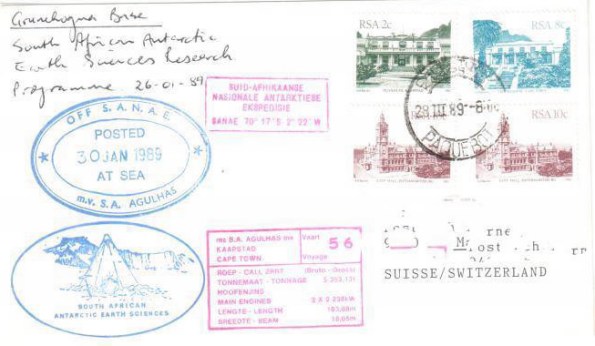 Grunehogna Base
South African Antarctic
Earth Sciences Research
Programme 26-01-89
OFF S.A.N.A.E.
POSTED
30 JAN 1989
AT SEA
m.v. S.A. AGULHAS
SUID-AFRIKAANSE
NASIONALE ANTARKTIESE
EKSPEDISIE
SANAE 70° 17' S 2° 22' W
RSA 2c
RSA 8c
28 III 89
PAQUEBOT
RSA 10c
SOUTH AFRICAN
ANTARCTIC EARTH SCIENCES
ms S.A. AGULHAS mv
KAAPSTAD
CAPE TOWN
Vaart
Voyage
56
ROEP - CALL
(Bruto - Gross)
TONNEMAAT - TONNAGE
HOOFENJINS
MAIN ENGINES
LENGTE - LENGTH
BREEDTE - BEAM
SUISSE/SWITZERLAND